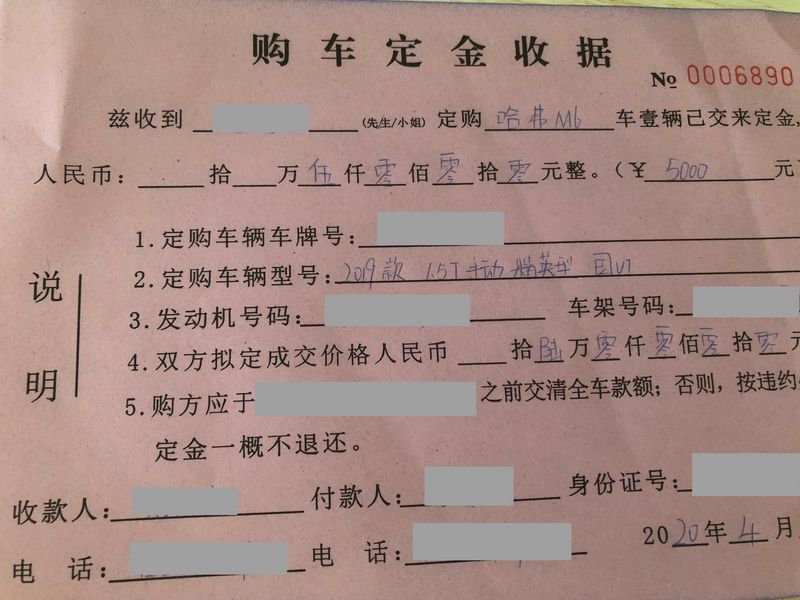 购车定金收据
№ 0006890
兹收到 (先生/小姐) 定购 哈弗M6 车壹辆已交来定金,
人民币: 拾 万 伍 仟 零 佰 零 拾 零 元整。(¥ 5000 元
说明
1.定购车辆车牌号:
2.定购车辆型号: 2019款 1.5T 手动 精英型 国VI
3.发动机号码: 车架号码:
4.双方拟定成交价格人民币 拾 陆 万 零 仟 零 佰 零 拾 零 元
5.购方应于 之前交清全车款额；否则，按违约
定金一概不退还。
收款人: 付款人: 身份证号:
电 话: 电 话: 2020年 4 月